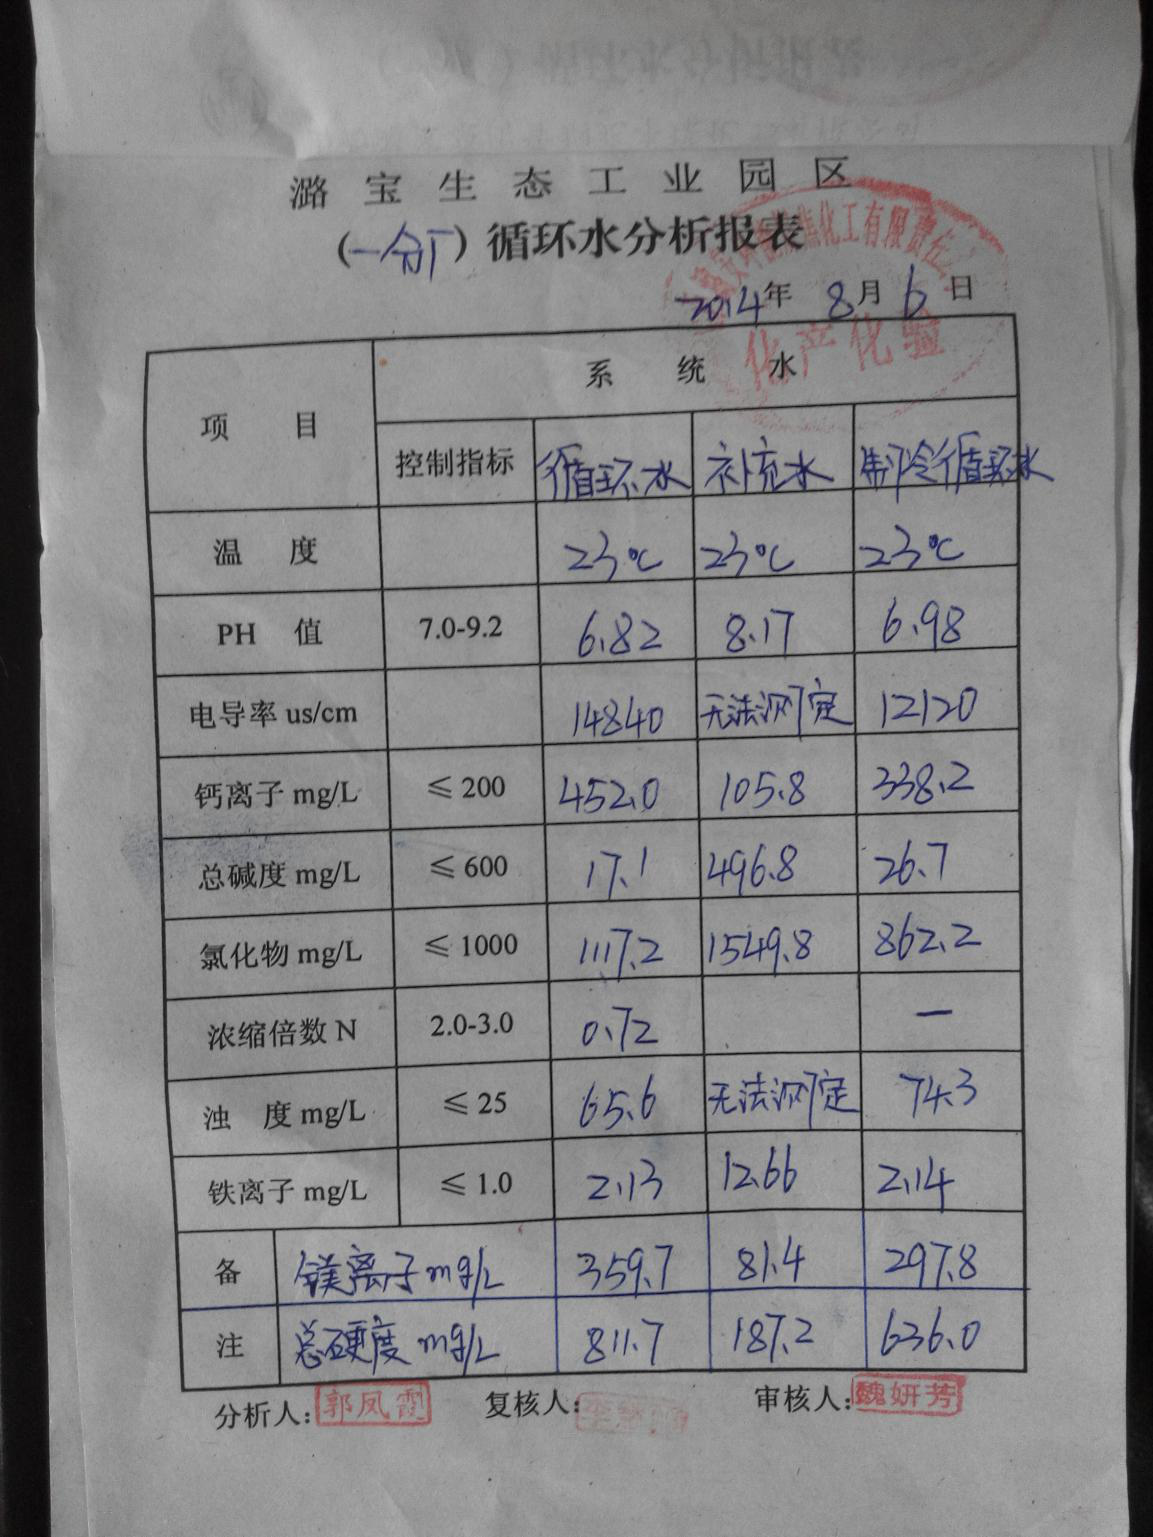 潞宝生态工业园区
(一分厂)循环水分析报表
2014年 8月 6日
化产化验
项目 系统水
控制指标 循环水 补充水 制冷循环水
温度 23℃ 23℃ 23℃
PH 值 7.0-9.2 6.82 8.17 6.98
电导率 us/cm 14840 无法测定 12120
钙离子 mg/L ≤200 452.0 105.8 338.2
总碱度 mg/L ≤600 17.1 496.8 26.7
氯化物 mg/L ≤1000 1117.2 1549.8 862.2
浓缩倍数 N 2.0-3.0 0.72 —
浊度 mg/L ≤25 65.6 无法测定 74.3
铁离子 mg/L ≤1.0 2.13 12.66 2.14
备 镁离子 mg/L 359.7 81.4 297.8
注 总硬度 mg/L 811.7 187.2 636.0
分析人: 郭凤霞 复核人: 审核人: 魏妍芳